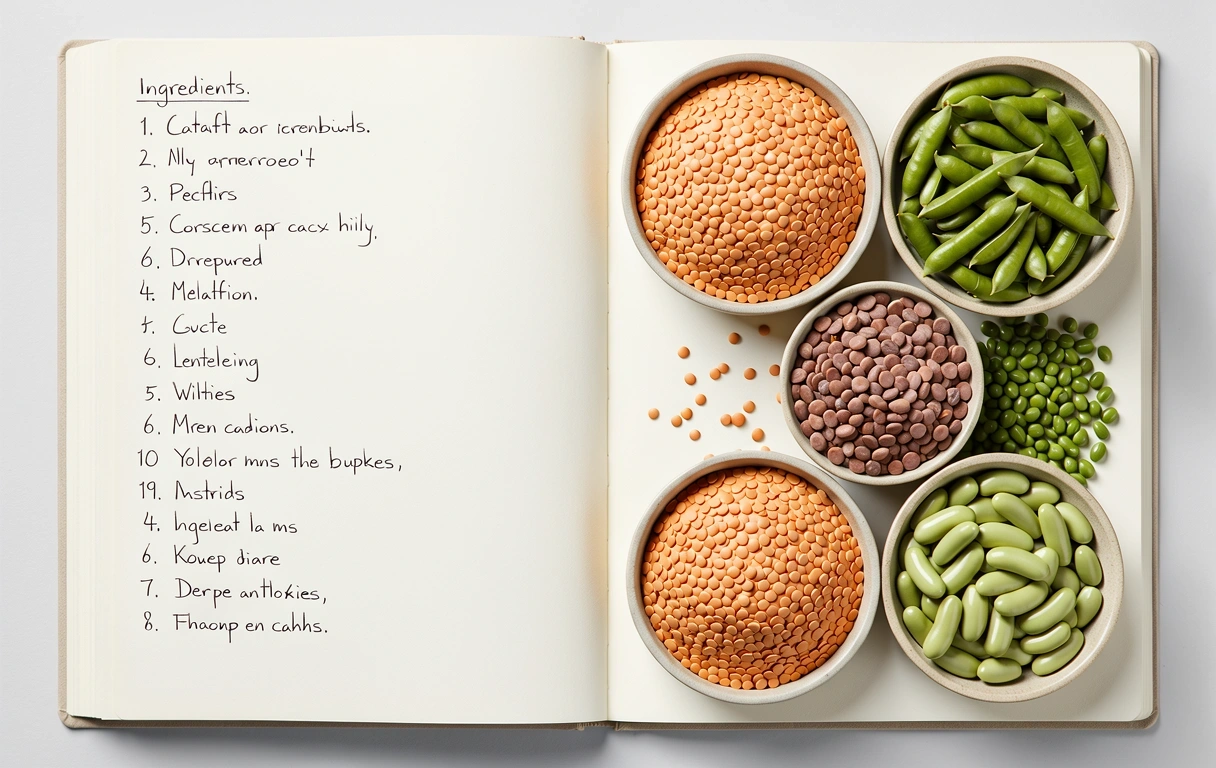 Ingredients.
1. Cataft aor icrenbiuts.
2. Nly arnerroeo't
3. Pecflirs
5. Corscem apr cacx hiily,
6. Drrepured
4. Melatfion.
7. Gucte
6. Lenteleing
5. Wilties
6. Mren cadions.
10 Yolelor mns the bupkes,
19. Mstrids
4. hgeleat la ms
6. Kouep diare
7. Derpe anthokies,
8. Fhaonp en cahhs.